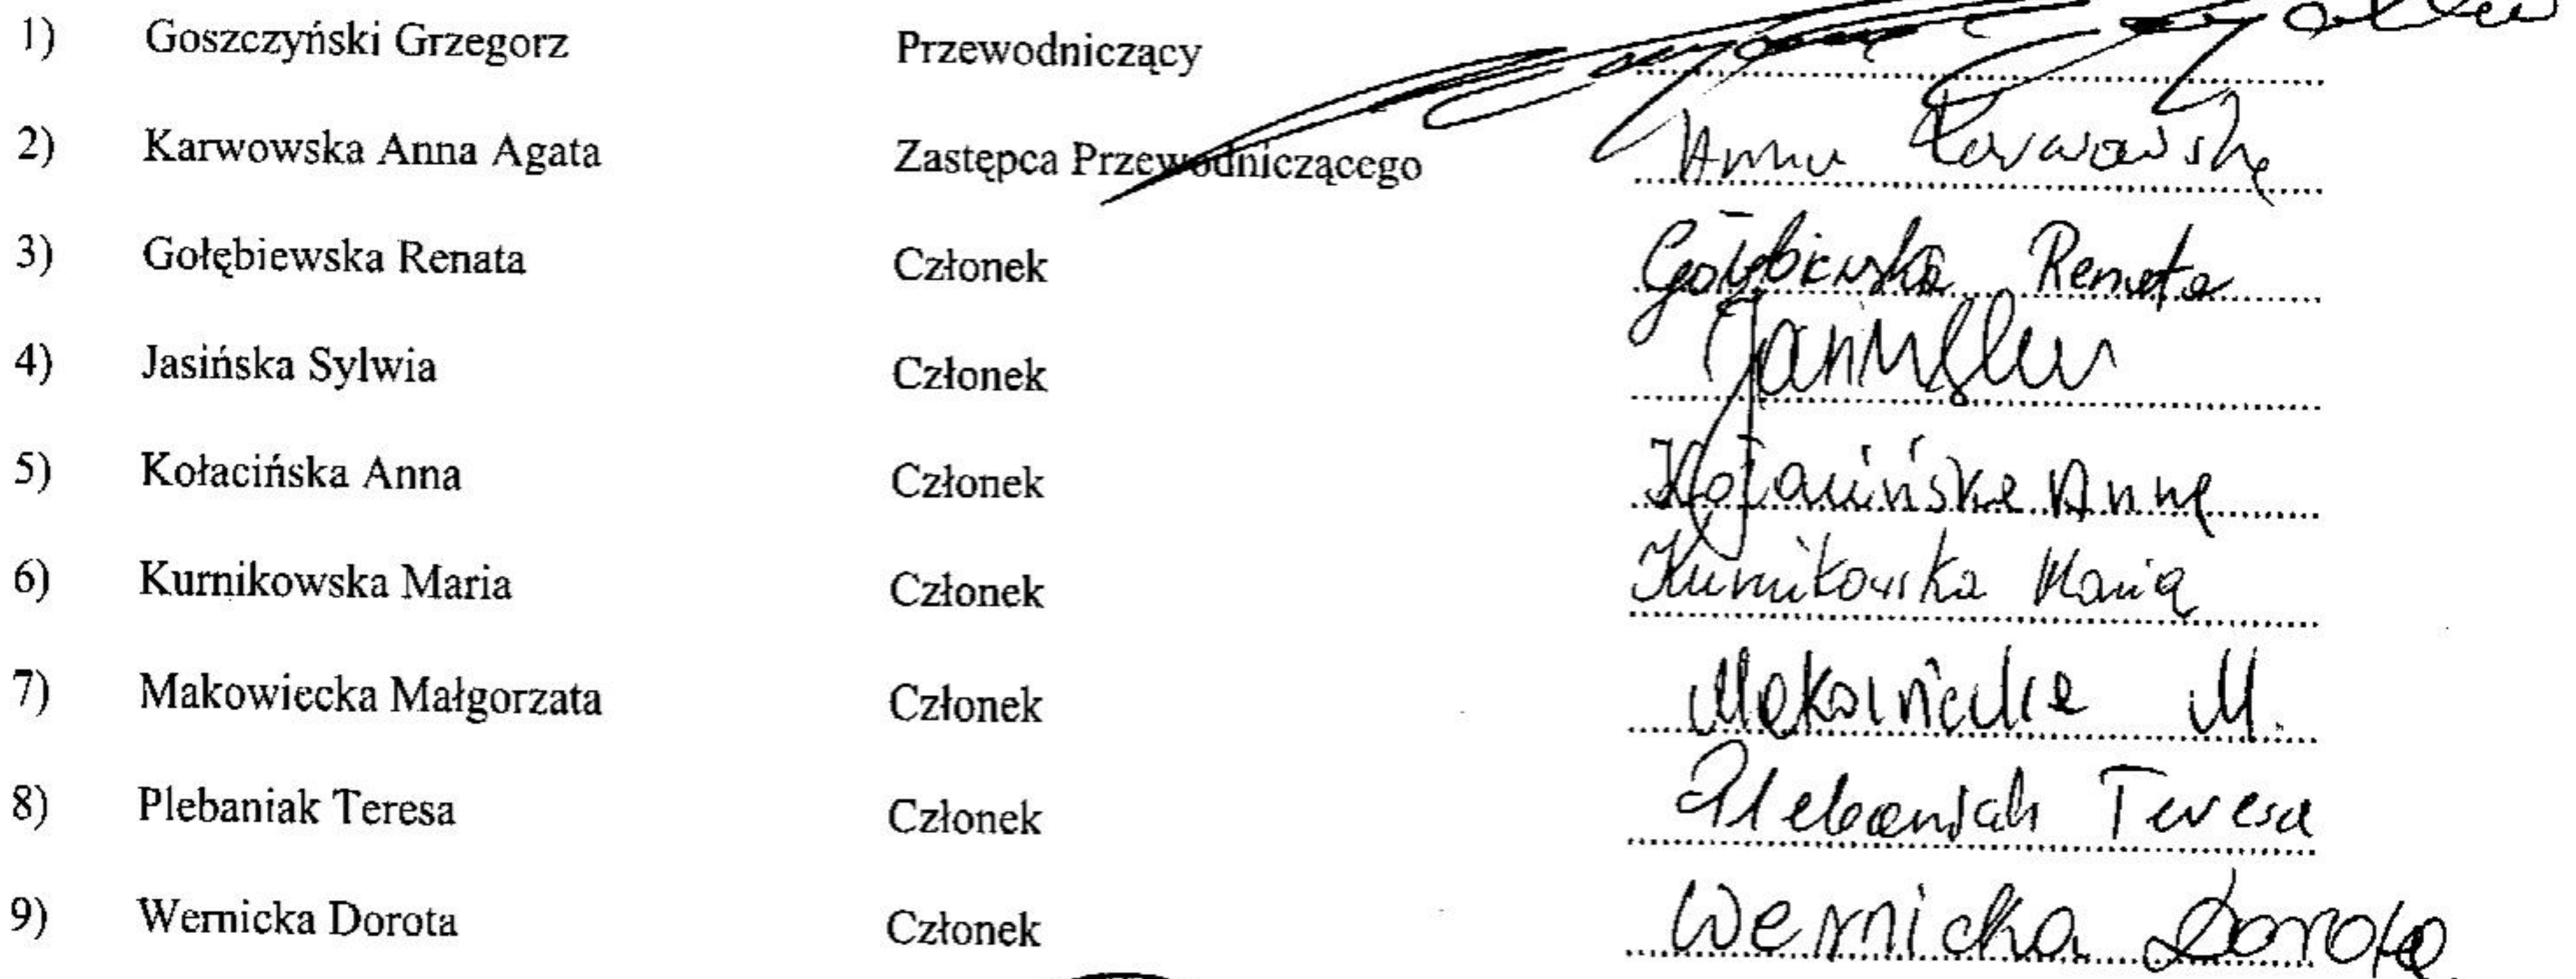 1) Goszczyński Grzegorz Przewodniczący
2) Karwowska Anna Agata Zastępca Przewodniczącego Anna Karwowska
3) Gołębiewska Renata Członek Gołębiewska Renata
4) Jasińska Sylwia Członek
5) Kołacińska Anna Członek Kołacińska Anna
6) Kurnikowska Maria Członek Kurnikowska Maria
7) Makowiecka Małgorzata Członek Makowiecka M.
8) Plebaniak Teresa Członek Plebaniak Teresa
9) Wernicka Dorota Członek Wernicka Dorota